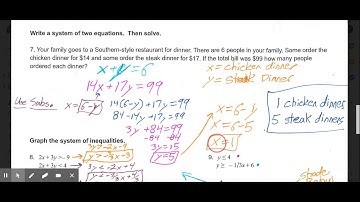 Write a system of two equations. Then solve.
7. Your family goes to a Southern-style restaurant for dinner. There are 6 people in your family. Some order the
chicken dinner for $14 and some order the steak dinner for $17. If the total bill was $99 how many people
ordered each dinner?
x = chicken dinner
y = Steak Dinner
x+y=6
14x+17y=99
Use Subs.
x=6-y
14(6-y)+17y=99
84-14y+17y=99
3y+84=99
-84 -84
3y=15
y=5
x=6-y
x=6-5
x=1
1 chicken dinner
5 steak dinners
Graph the system of inequalities.
8. 2x + 3y > -9
2x + 3y < 4
3y>-2x-9
3y<-2x+4
9. y ≤ 4
y ≥ -1/3x + 6